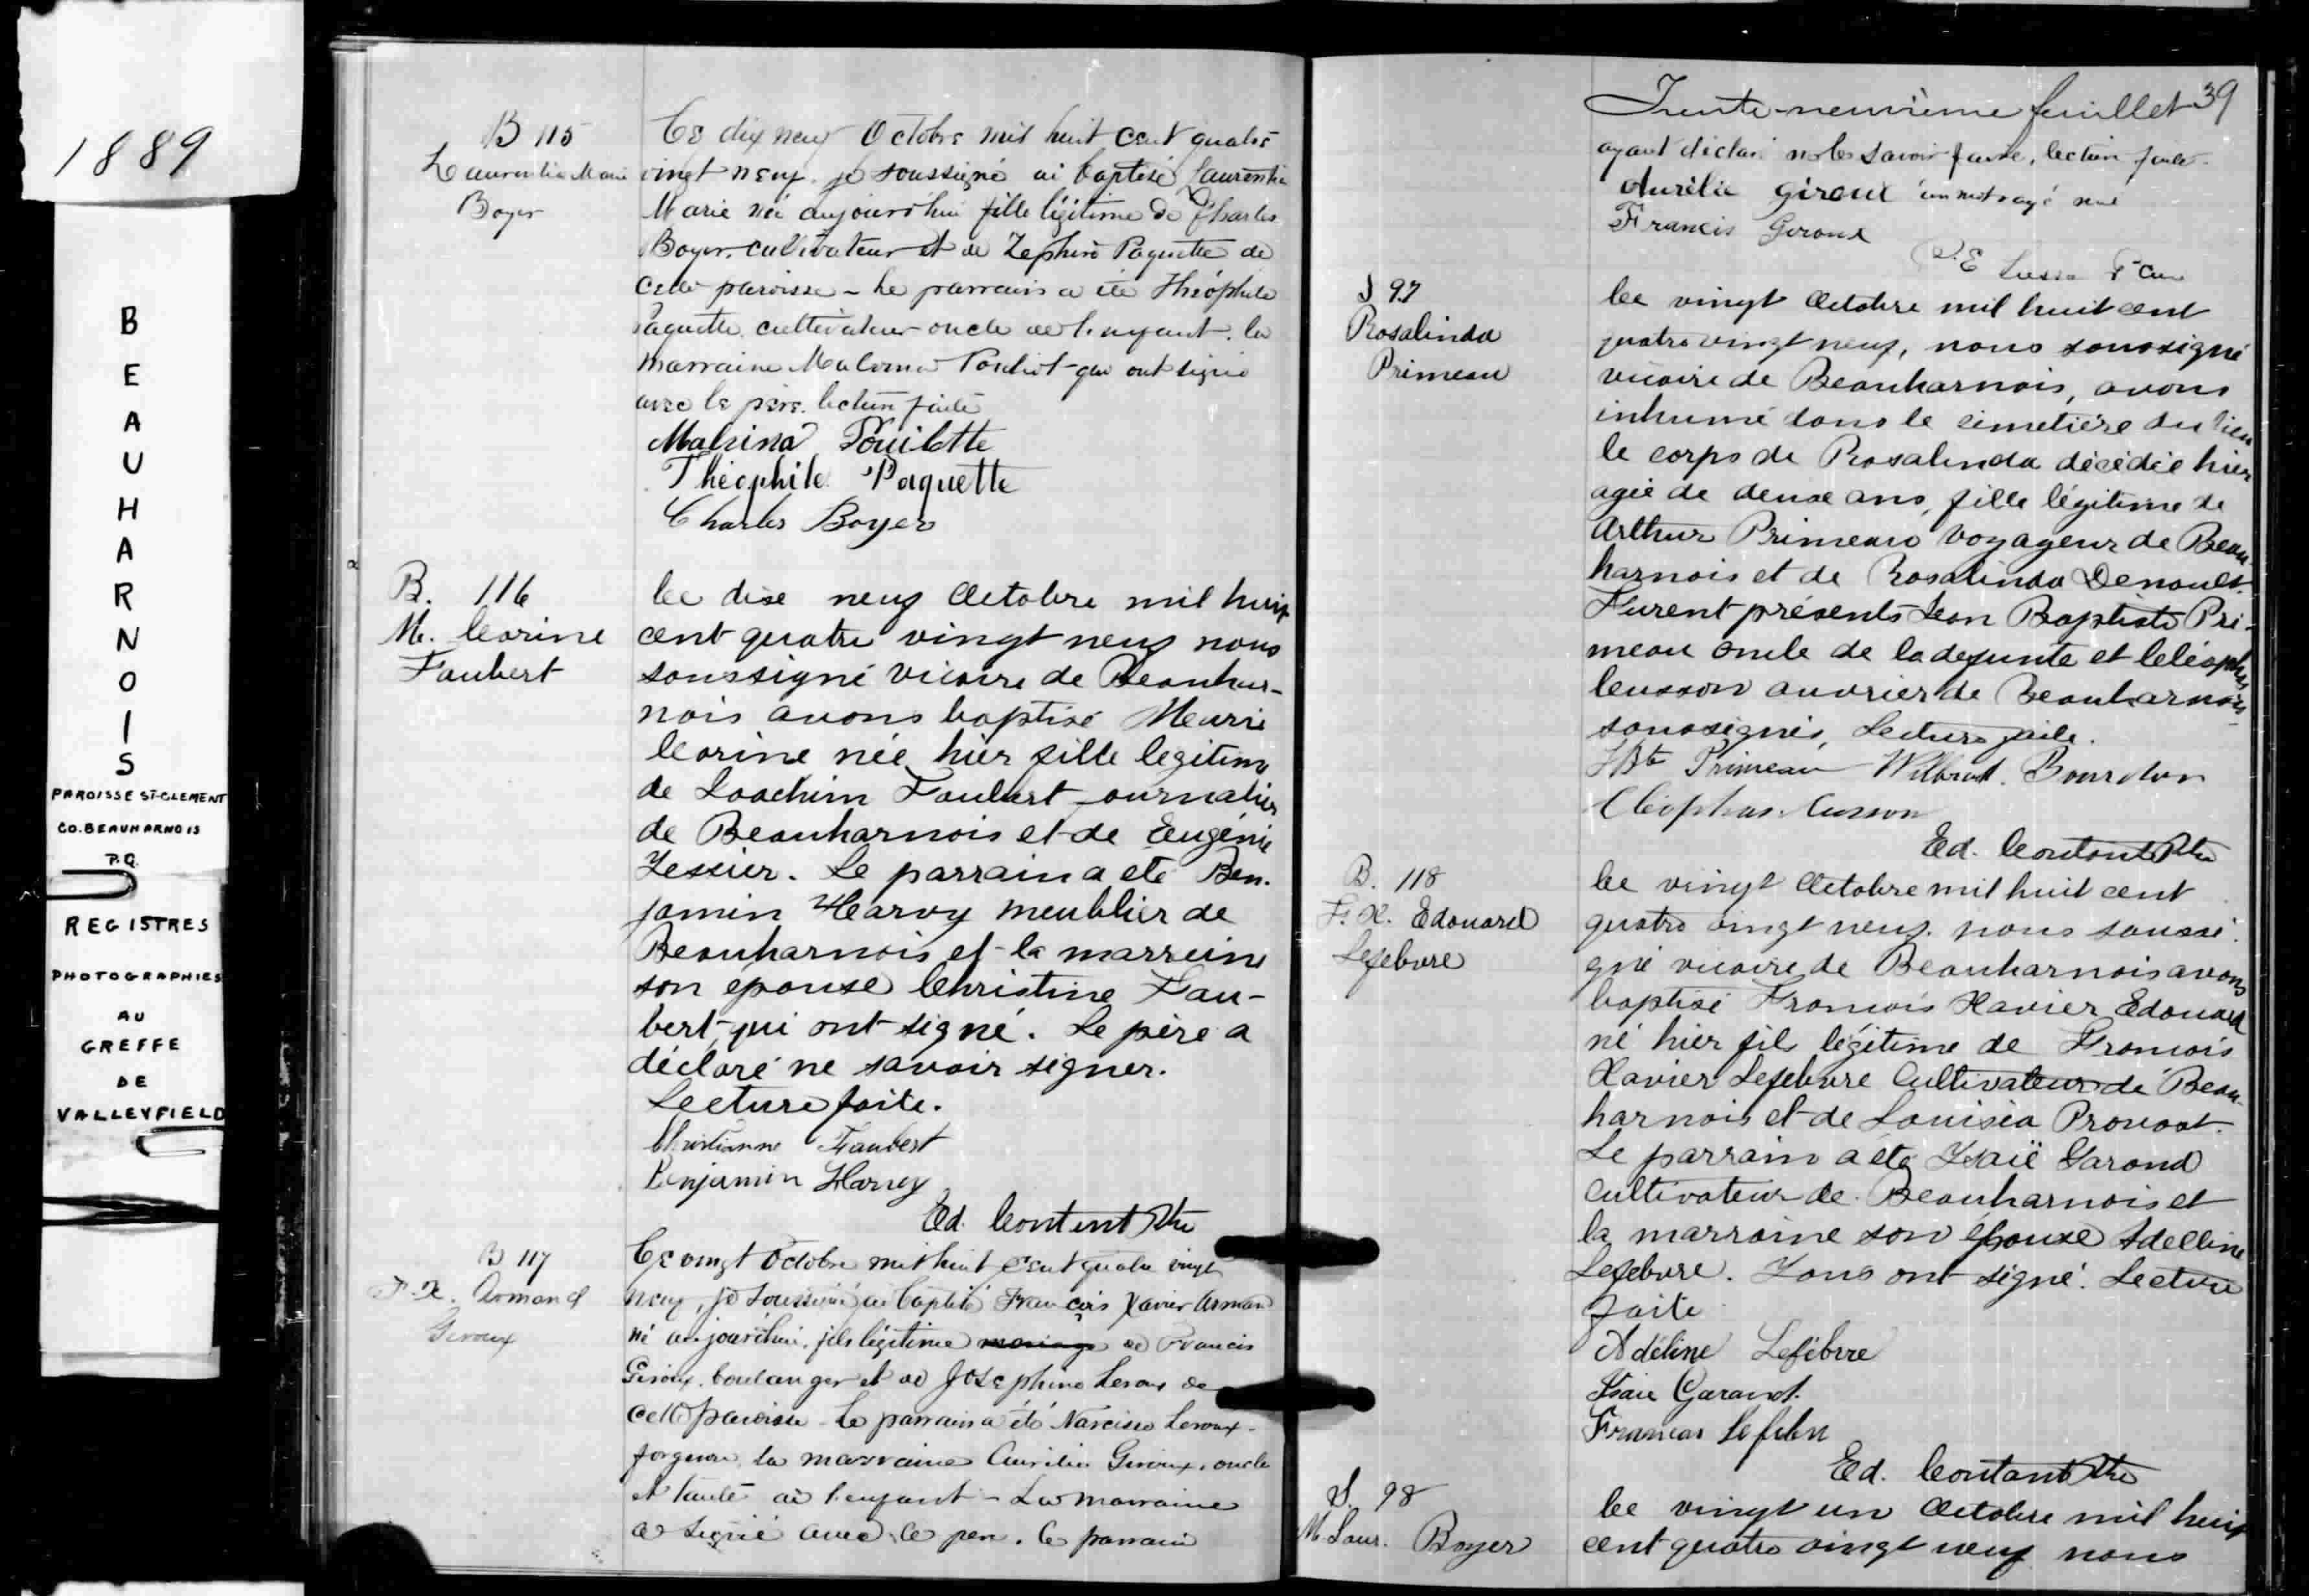 1889
BEAUHARNOIS
PAROISSE ST-CLEMENT
CO. BEAUHARNOIS
P.Q.
REGISTRES
PHOTOGRAPHIES
AU
GREFFE
DE
VALLEYFIELD
B 115
Laurentia Marie
Boyer
Ce dix neuf Octobre mil huit cent quatre
vingt neuf je soussigné ai baptisé Laurentia
Marie née aujourd'hui fille légitime de Charles
Boyer cultivateur et de Zephire Paquette de
cette paroisse - Le parrain a été Théophile
Paquette cultivateur oncle de l'enfant. la
marraine Malvina Pouliot qui ont signé
avec le père. lecture faite
Malvina Pouilotte
Théophile Paquette
Charles Boyer
B. 116
M. Corine
Faubert
Ce dix neuf Octobre mil huit
cent quatre vingt neuf nous
soussigné vicaire de Beauhar-
nois avons baptisé Marie
Corine née hier fille legitime
de Joachim Faubert journalier
de Beauharnois et de Eugénie
Tessier. Le parrain a ete Ben-
jamin Harvy meublier de
Beauharnois et la marraine
son epouse Christine Fau-
bert qui ont signé. Le père a
déclaré ne savoir signer.
Lecture faite.
Christianne Faubert
Benjamin Harvey
Ed. Coutant Ptre
B 117
F.X. Armand
Giroux
Ce vingt Octobre mil huit cent quatre vingt
neuf, je soussigné ai baptisé François Xavier Arman
né aujourd'hui, fils légitime mariage de Francis
Giroux boulanger et de Josephine Leroux de
cette paroisse Le parrain a été Narcisse Leroux
forgeron la marraine Aurélie Giroux, oncle
et tante de l'enfant - La marraine
a signé avec le père. le parrain
Trente-neuvième feuillet 39
ayant déclaré ne le savoir faire, lecture faite.
Aurélie Giroux un mot rayé nul
Francis Giroux
S 97
Rosalinda
Primeau
Ce vingt Octobre mil huit cent
quatre vingt neuf, nous soussigné
vicaire de Beauharnois, avons
inhumé dans le cimetière du lieu
le corps de Rosalinda décédée hier
agée de deux ans, fille légitime de
Arthur Primeau voyageur de Beau
harnois et de Rosalinda Denault.
Furent présents Jean Baptiste Pri-
meau oncle de la defunte et Cléophas
Cusson ouvrier de Beauharnois
soussignés, Lecture faite.
JBte Primeau Wilbrod. Bourdon
Cléophas Cusson
Ed. Coutant Ptre
B. 118
F. X. Edouard
Lefebvre
Ce vingt Octobre mil huit cent
quatre vingt neuf nous soussi-
gné vicaire de Beauharnois avons
baptisé Francois Xavier Edouard
né hier fils légitime de Francois
Xavier Lefebvre Cultivateur de Beau-
harnois et de Louisia Provost.
Le parrain a été Isaïe Garand
cultivateur de Beauharnois et
la marraine son épouse Adelline
Lefebvre. Tous ont signé. Lecture
faite
Adéline Lefébvre
Isaie Garand.
Ed. Coutant Ptre
S. 98
M. Laur. Boyer
Ce vingt un Octobre mil huit
cent quatre vingt neuf nous